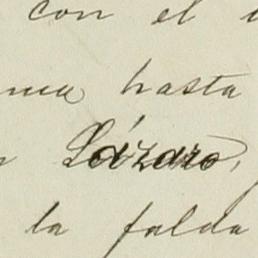 con el
hasta
Lázaro,
la falda